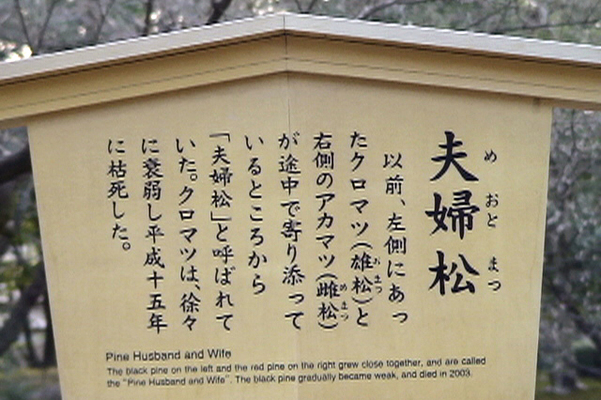 夫婦松
めおとまつ
以前、左側にあっ
たクロマツ(雄松)と
おまつ
右側のアカマツ(雌松)
めまつ
が途中で寄り添って
いるところから
「夫婦松」と呼ばれて
いた。クロマツは、徐々
に衰弱し平成十五年
に枯死した。
Pine Husband and Wife
The black pine on the left and the red pine on the right grew close together, and are called
the "Pine Husband and Wife". The black pine gradually became weak, and died in 2003.